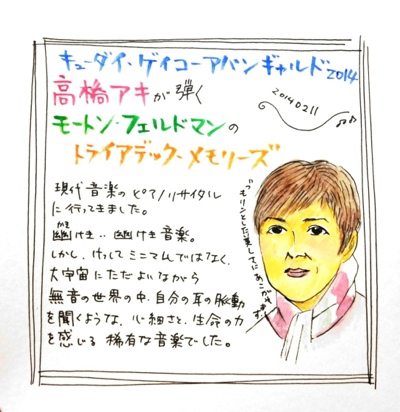 キューダイ・ゲイコーアバンギャルド2014
高橋アキが弾く
モートン・フェルドマンの
トライアデック・メモリーズ
20140211
現代音楽のピアノリサイタル
に行ってきました。
かそ
幽けき‥幽けき音楽。
しかし、けってミニマムではなく、
大宇宙にただよいながら
無音の世界の中、自分の耳の脈動
を聞くような、心細さと、生命の力
を感じる稀有な音楽でした。